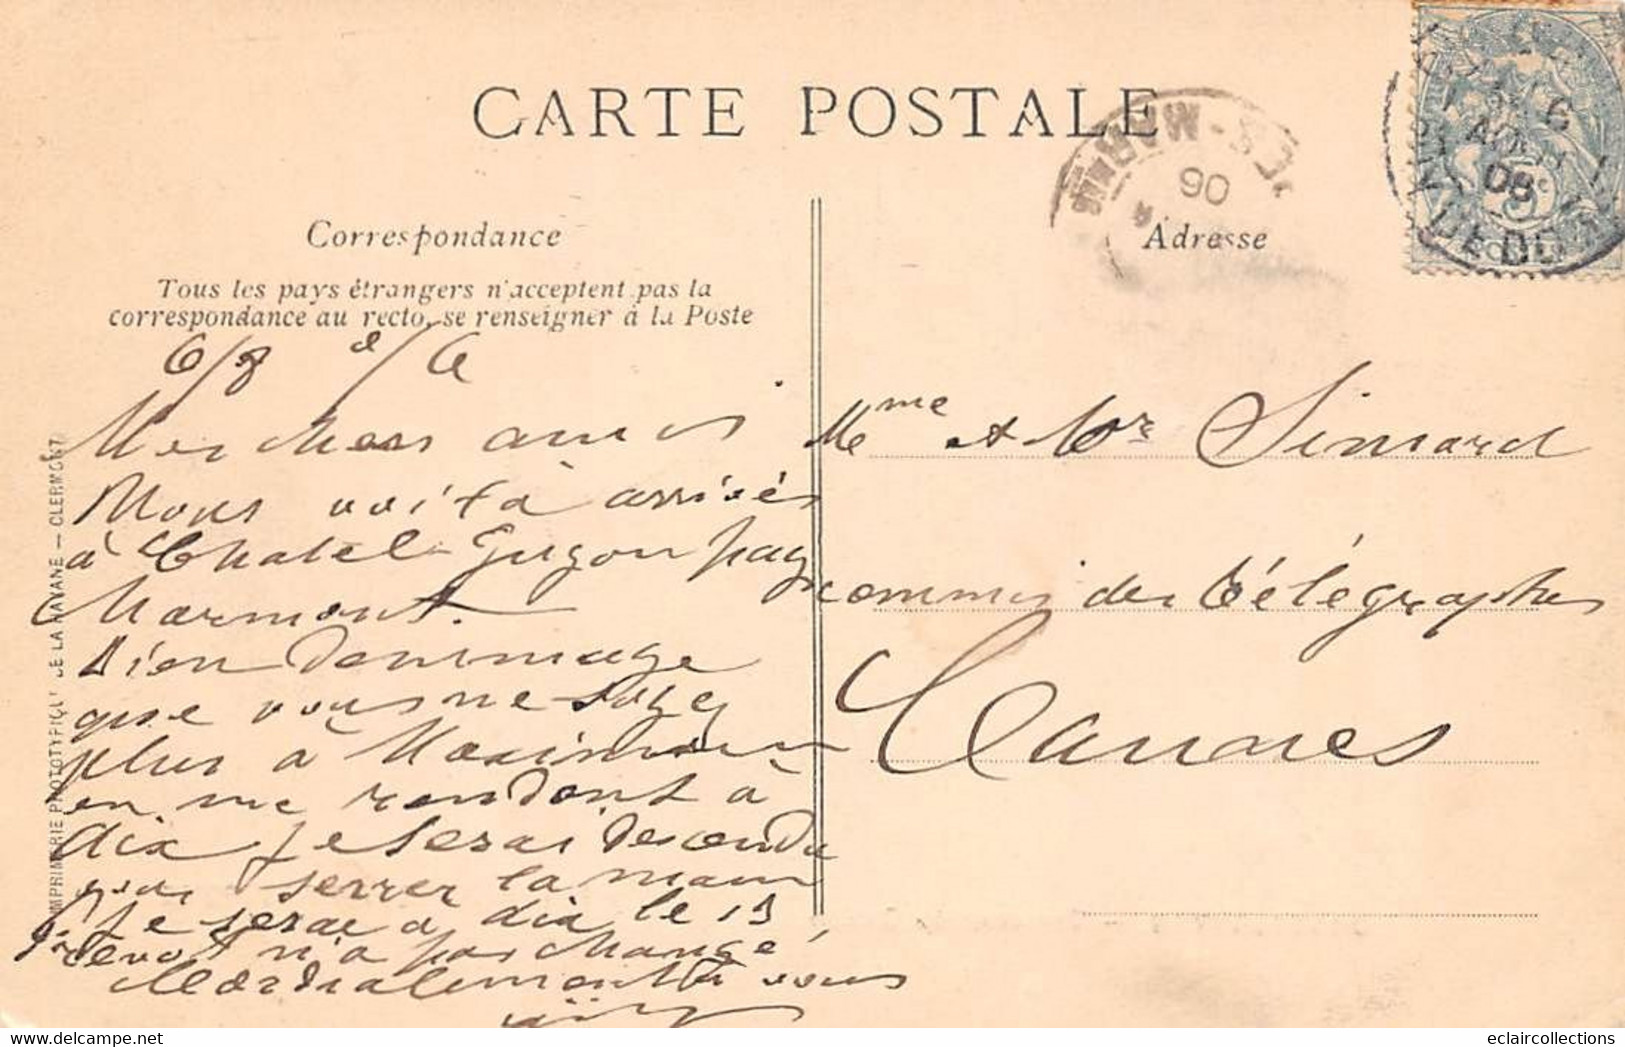 CARTE POSTALE
Correspondance
Tous les pays étrangers n'acceptent pas la
correspondance au recto, se renseigner à la Poste
Adresse
06
6/8 06
Mes chers amis
Nous voilà arrivés
à Chatel-Guyon pays
Marmont.
Bien dommage
que vous ne soyez
plus à Maximin
en me rendant à
dix je serai descendu
vous serrer la main
Je serai à dix le 19
n'a pas changé
Cordialement à vous
Mme et Mr Simard
commis des Télégraphes
Cannes
IMPRIMERIE PHOTOTYPIQUE DE LA HAVANE — CLERMONT
eclaircollections